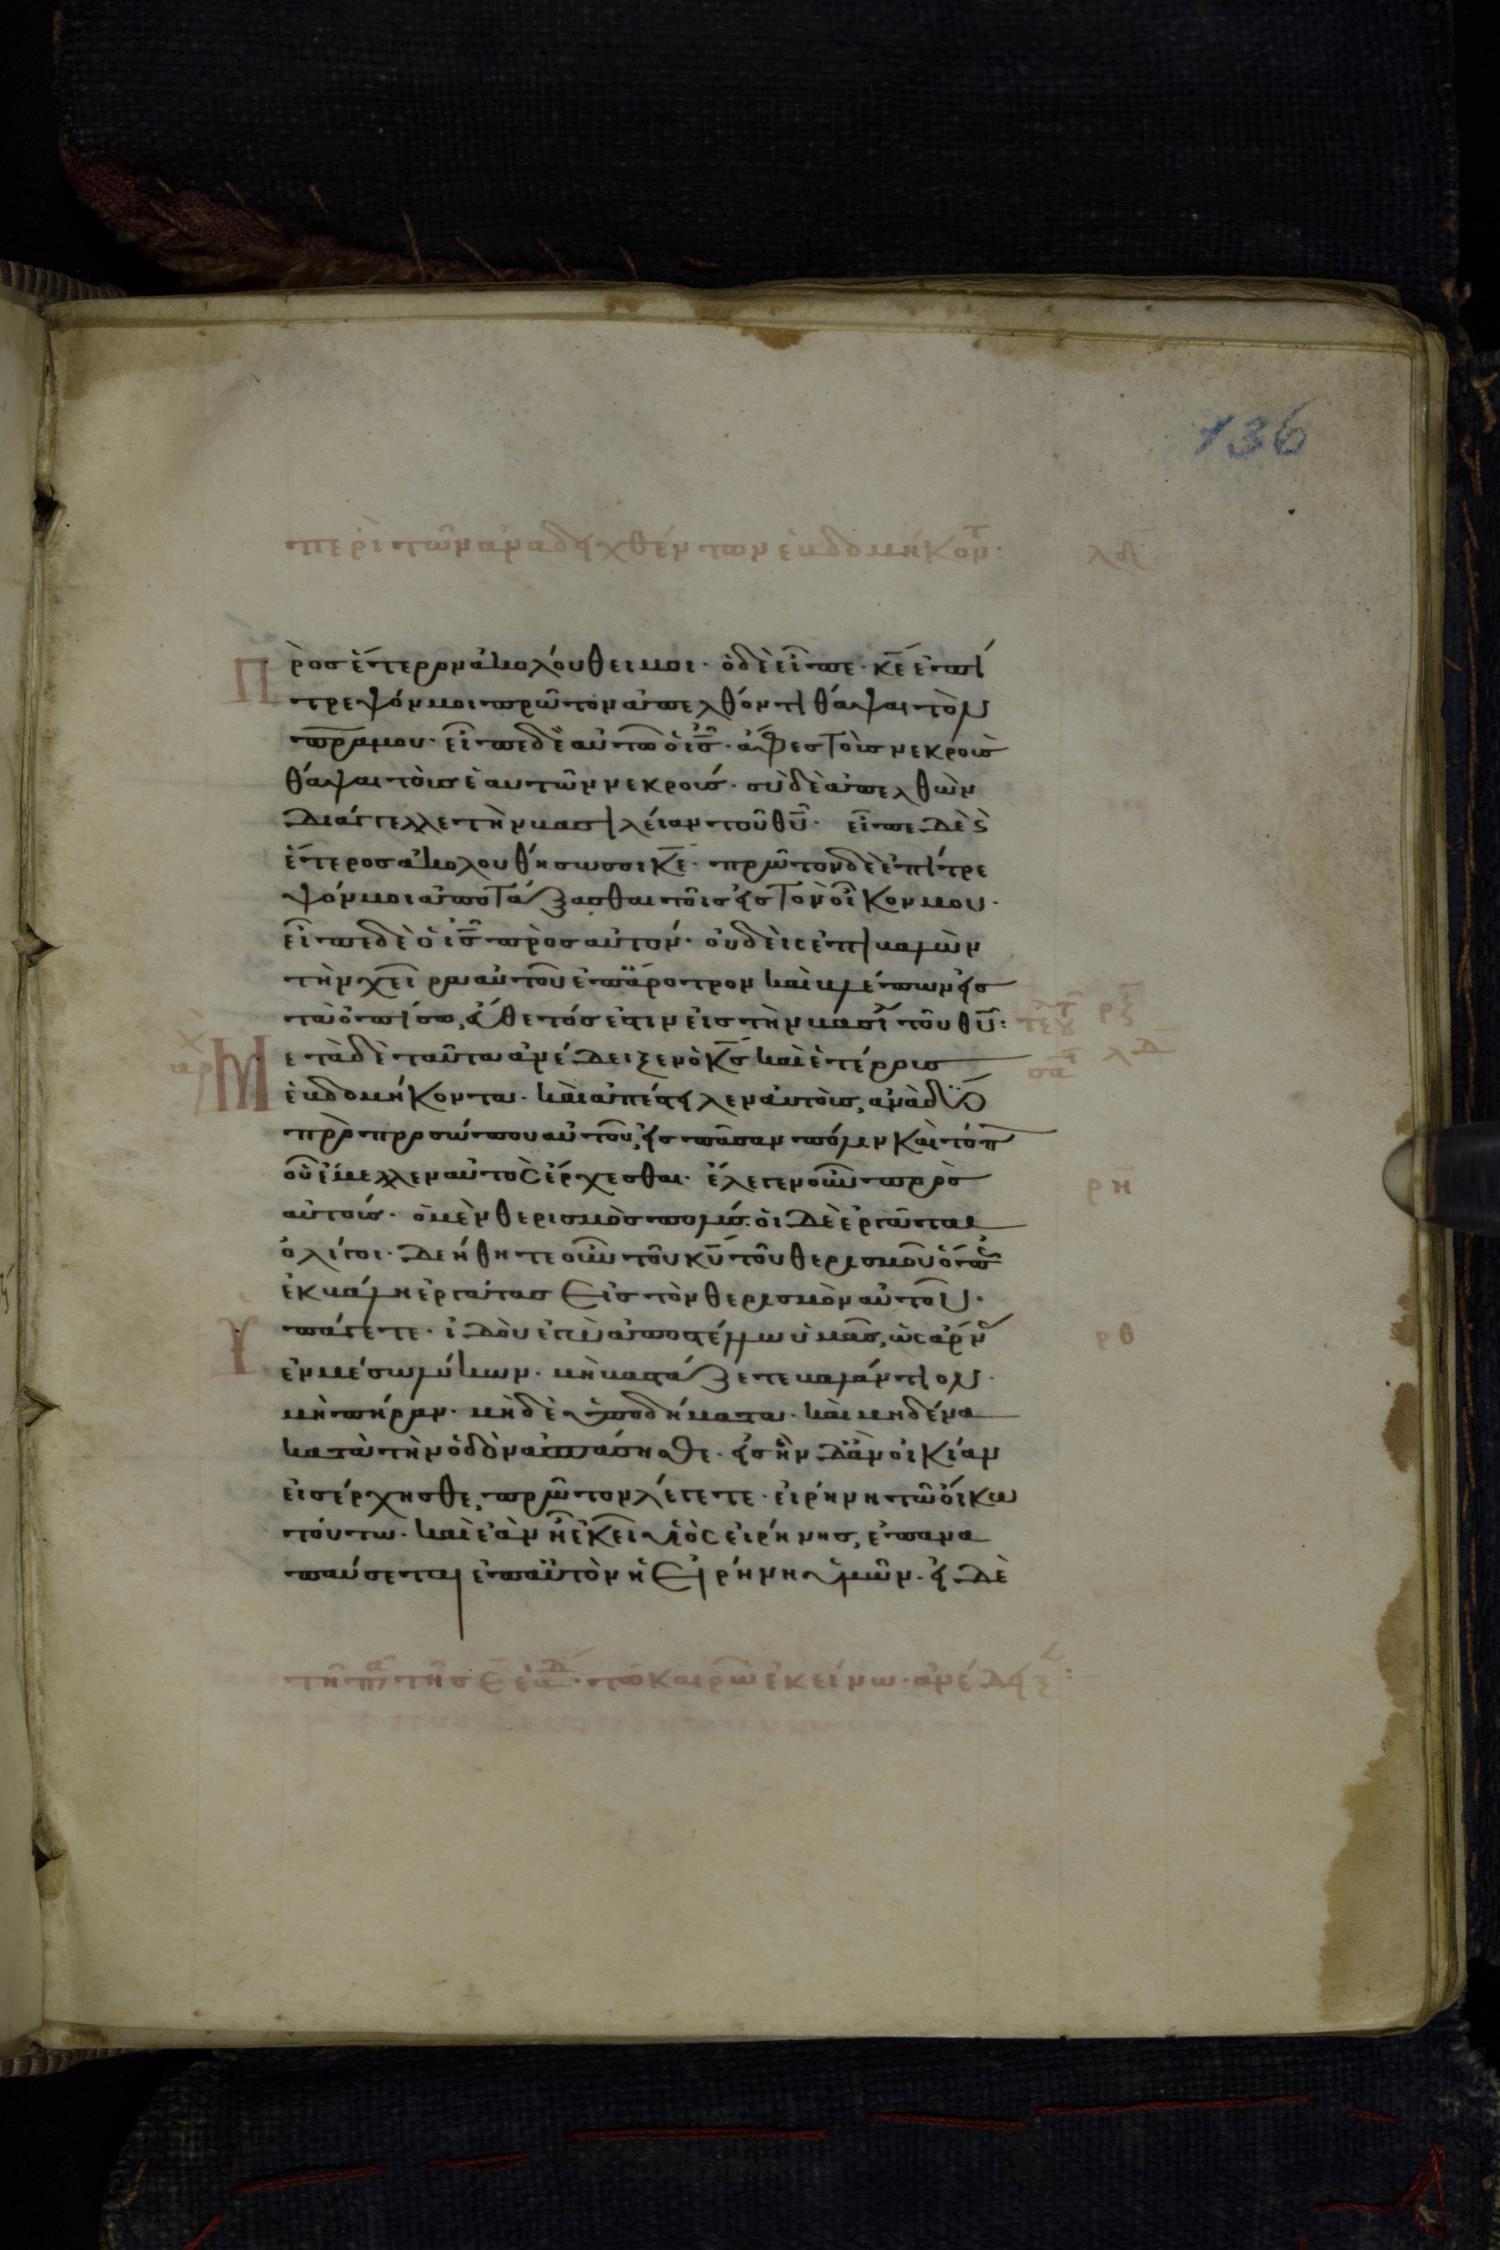 136
περὶ τῶν ἀναδειχθέντων ἑβδομήκοντ: λδ
Πρὸς ἕτερον ἀκολούθει μοι· ὁ δὲ εἶπε· κε ἐπί
τρεψόν μοι πρῶτον ἀπελθόντι θάψαι τὸν
πρα μου· εἶπε δὲ αὐτῶ ὁ ισ· ἄφες τοὺς νεκροὺς
θάψαι τοὺς ἑαυτῶν νεκρούς· σὺ δὲ ἀπελθὼν
διάγγελλε τὴν βασιλείαν τοῦ θυ· εἶπε δὲ ϛ
ἕτερος ἀκολουθήσω σοι κε· πρῶτον δὲ ἐπίτρε
ψόν μοι ἀποτάξασθαι τοῖς εἰς τὸν οἶκον μου·
εἶπε δὲ ὁ ισ πρὸς αὐτόν· οὐδεὶς ἐπιβαλὼν
τὴν χεῖρα αὐτοῦ ἐπ᾽ ἄροτρον καὶ βλέπων εἰς
τὰ ὀπίσω, εὔθετός ἐστιν εἰς τὴν βασι τοῦ θυ: τελ ρξ
Μετὰ δὲ ταῦτα ἀνέδειξεν ὁ κσ καὶ ἑτέρους σα λδ
ἑβδομήκοντα· καὶ ἀπέστειλεν αὐτοὺς, ἀνὰ δύο
πρὸ προσώπου αὐτοῦ, εἰς πᾶσαν πόλιν καὶ τόπ
οὗ ἔμελλεν αὐτὸς ἔρχεσθαι· ἔλεγεν οὖν πρὸς ρη
αὐτούς· ὁ μὲν θερισμὸς πολύς· οἱ δὲ ἐργάται
ὀλίγοι· δεήθητε οὖν τοῦ κυ τοῦ θερισμοῦ ὅπως
ἐκβάλη ἐργάτας εἰς τὸν θερισμὸν αὐτοῦ·
Ὑπάγετε· ἰδοὺ ἐγὼ ἀποστέλλω ὑμᾶς, ὡς ἄρν ρθ
ἐν μέσω λύκων· μὴ βαστάζετε βαλάντιον·
μὴ πήραν· μηδὲ ὑποδήματα· καὶ μηδένα
κατὰ τὴν ὁδὸν ἀσπάσησθε· εἰς ἣν δ᾽ ἂν οἰκίαν
εἰσέρχησθε, πρῶτον λέγετε· εἰρήνη τῶ οἴκω
τούτω· καὶ ἐὰν ἦ ἐκεῖ υἱὸς εἰρήνης, ἐπανα
παύσεται ἐπ᾽ αὐτὸν ἡ εἰρήνη ὑμῶν· εἰ δὲ
τῆ τῆς ε ἑβδ· τῶ καιρῶ ἐκείνω· ἀνέδειξ: